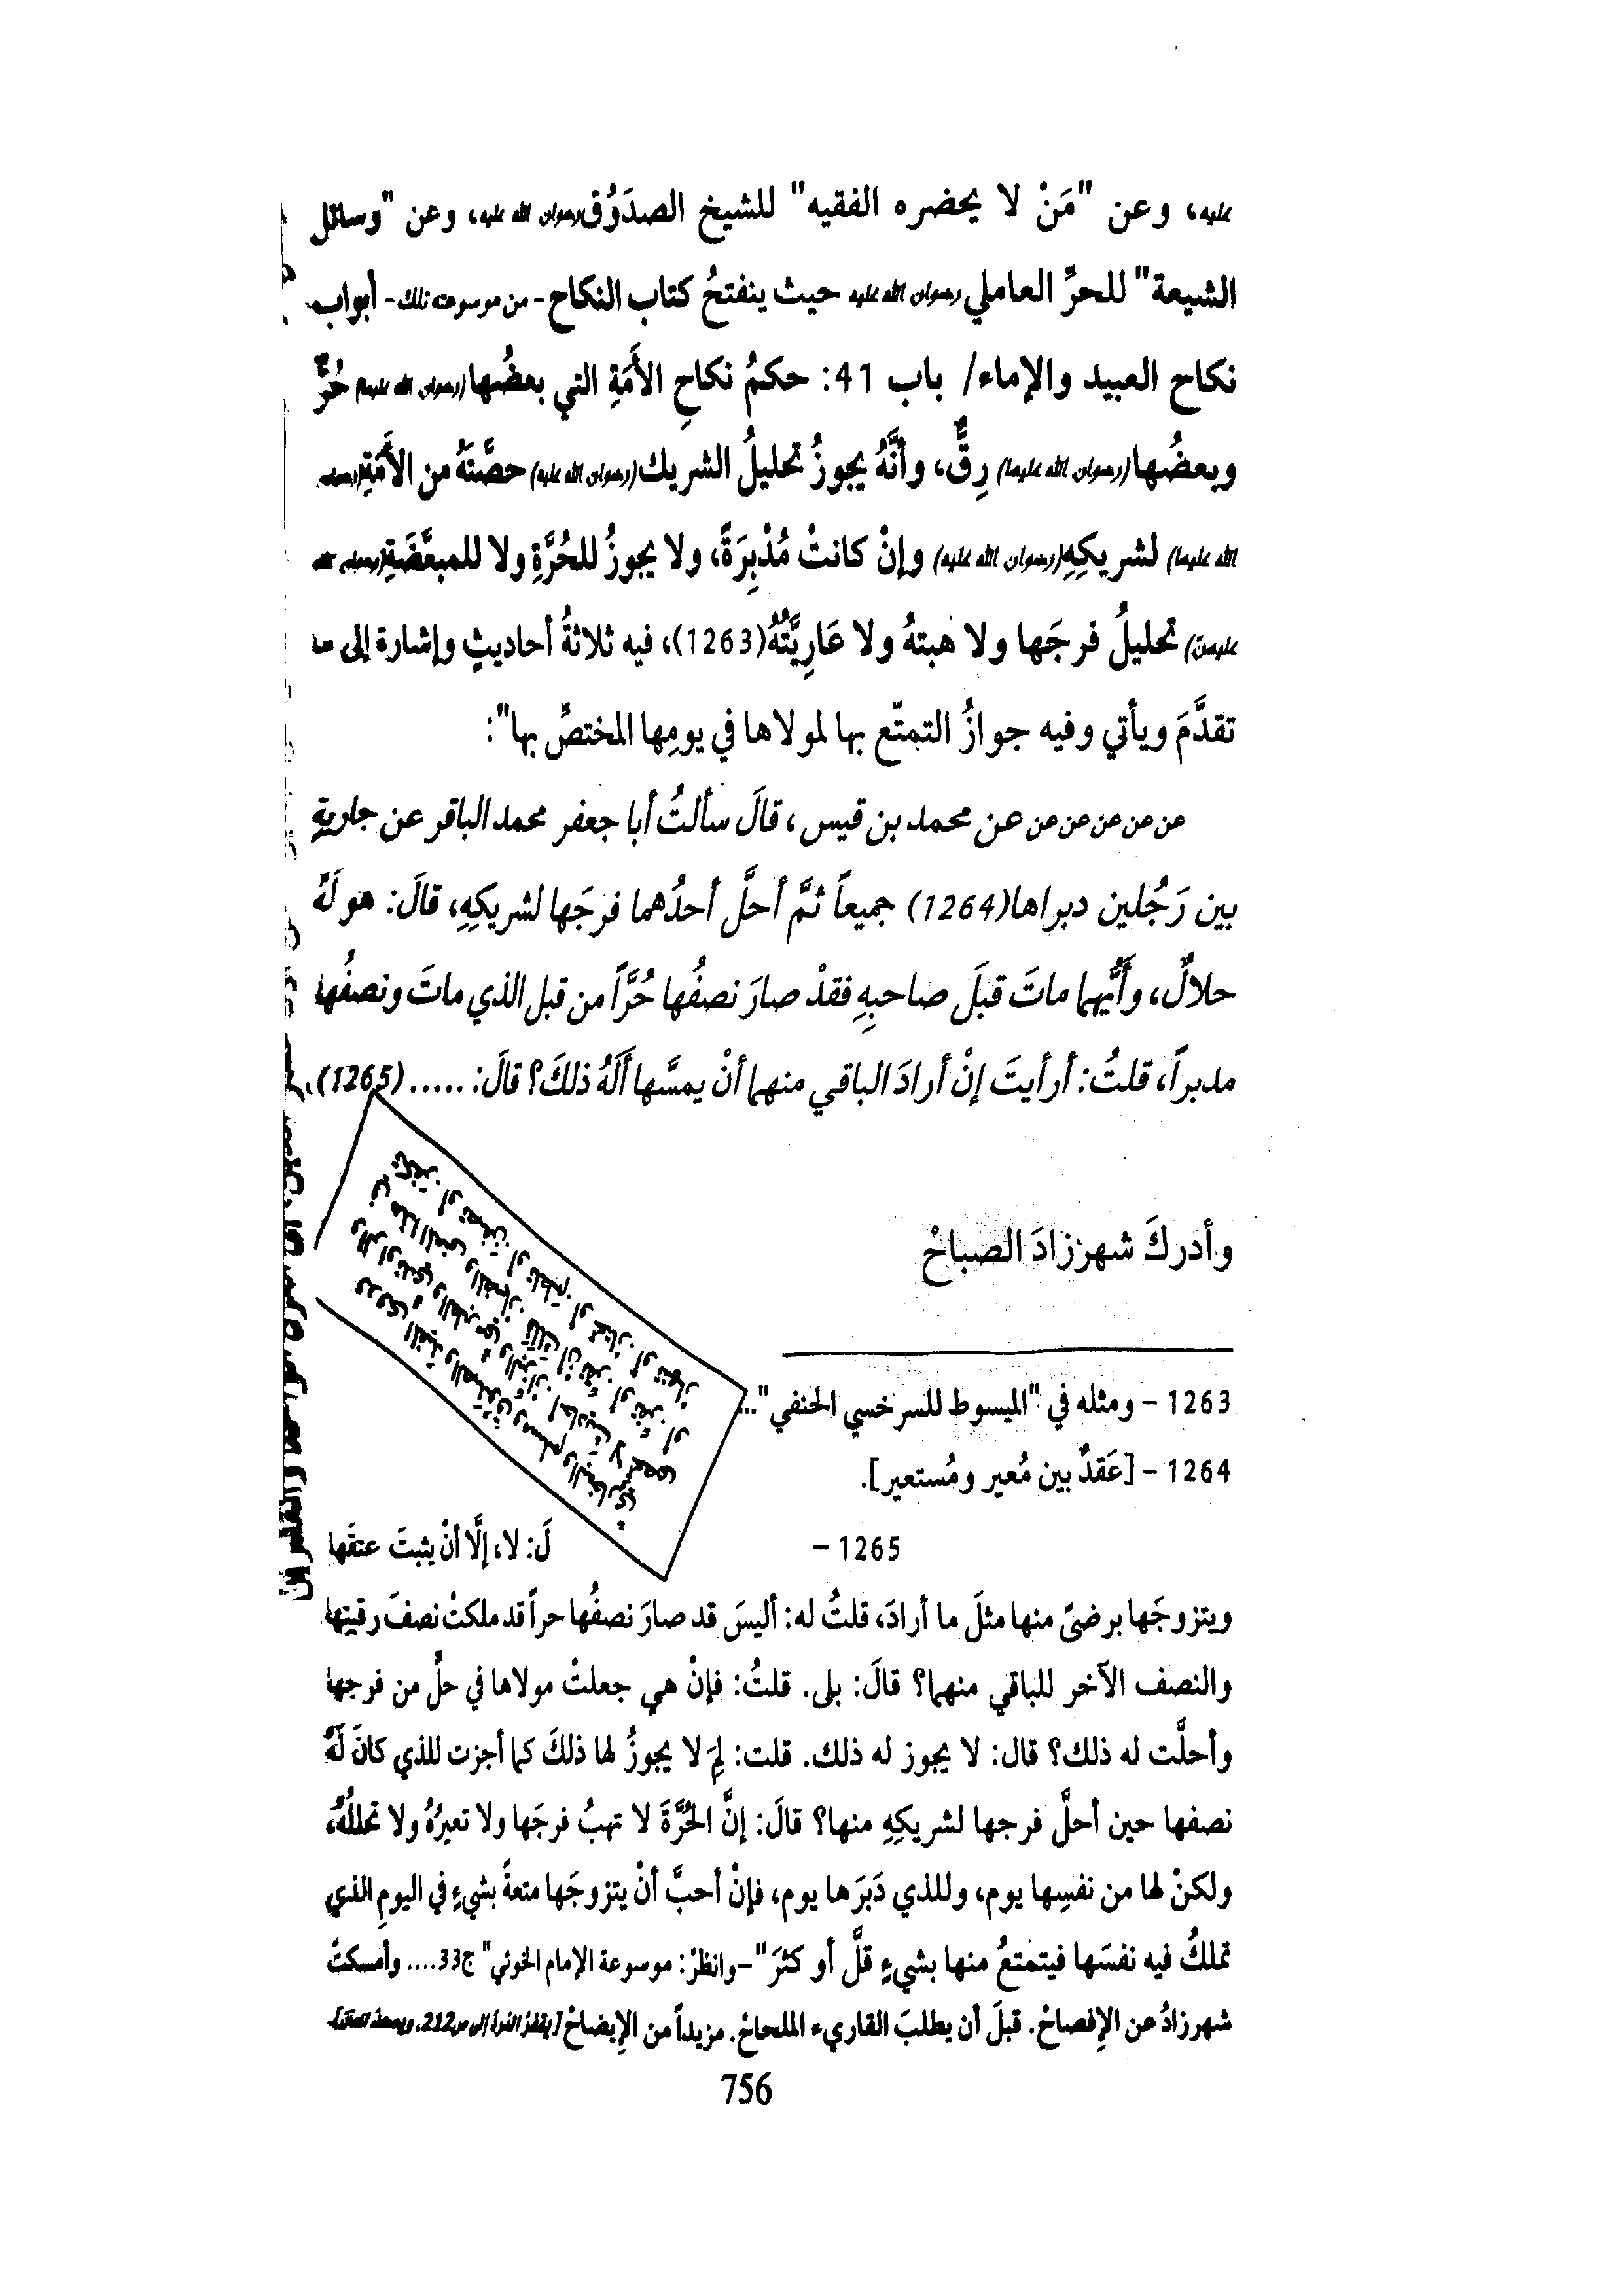 عليه، وعن "مَنْ لا يحضره الفقيه" للشيخ الصدَوُق رضوان الله عليه، وعن "وسائل
الشيعة" للحرِّ العاملي رضوان الله عليه حيث ينفتحُ كتاب النكاح - من موسوعته تلك - أبواب
نكاح العبيد والإماء/ باب 41: حكمُ نكاحِ الأَمَةِ التي بعضُها (رضوان الله عليها) حُرٌّ
وبعضُها (رضوان الله عليها) رِقٌّ، وأنَّهُ يجوزُ تحليلُ الشريك (رضوان الله عليه) حصَّتَهُ من الأَمَةِ (رضوان
الله عليها) لشريكِهِ (رضوان الله عليه) وإنْ كانتْ مُدْبِرَةً، ولا يجوزُ للحُرَّةِ ولا للمبعَّضَةِ (رضوان الله
عليهنّ) تحليلُ فرجَها ولا هبتهُ ولا عَارِيَّتُهُ (1263)، فيه ثلاثةُ أحاديثٍ وإشارة إلى ما
تقدَّمَ ويأتي وفيه جوازُ التمتّع بها لمولاها في يومِها المختصِّ بها":
عن عن عن عن عن عن محمد بن قيس، قالَ سألتُ أبا جعفر محمد الباقر عن جاريةٍ
بين رَجُلين دبراها (1264) جميعاً ثمَّ أحلَّ أحدُهما فرجَها لشريكِهِ، قالَ: هو لَهُ
حلالٌ، وأيُّهما ماتَ قبلَ صاحبِهِ فقدْ صارَ نصفُها حُرَّاً من قبل الذي ماتَ ونصفُها
مدبراً، قلتُ: أرأيتَ إنْ أرادَ الباقي منهما أنْ يمسَّها أَلَهُ ذلكَ؟ قالَ: ..... (1265)
وأدركَ شهرزادَ الصباحْ
1263 - ومثله في "المبسوط للسرخسي الحنفي"...
1264 - [عَقدٌ بين مُعير ومُستعير].
1265 - لَ: لا، إلَّا أنْ يثبتَ عتقَها
ويتزوجَها برضىً منها مثلَ ما أرادَ، قلتُ له: أليسَ قد صارَ نصفُها حراً قد ملكتْ نصفَ رقبتِها
والنصف الآخر للباقي منهما؟ قالَ: بلى. قلتُ: فإنْ هي جعلتْ مولاها في حلٍّ من فرجِها
وأحلَّت له ذلك؟ قال: لا يجوز له ذلك. قلت: لِمَ لا يجوزُ لها ذلكَ كما أجزت للذي كانَ لَهُ
نصفها حين أحلَّ فرجها لشريكِهِ منها؟ قالَ: إنَّ الحُرَّةَ لا تهبُ فرجَها ولا تعيرُهُ ولا تحللُهُ،
ولكنْ لها من نفسِها يوم، وللذي دَبَرَها يوم، فإنْ أحبَّ أنْ يتزوجَها متعةً بشيءٍ في اليومِ الذي
تملكُ فيه نفسَها فيتمتعُ منها بشيءٍ قلَّ أو كثرَ" - وانظرْ: موسوعة الإمام الخوئي" ج33.... وأمسكتْ
شهرزادُ عن الإفصاحْ. قبلَ أن يطلبَ القاريء الملحاحْ. مزيداً من الإيضاحْ
756